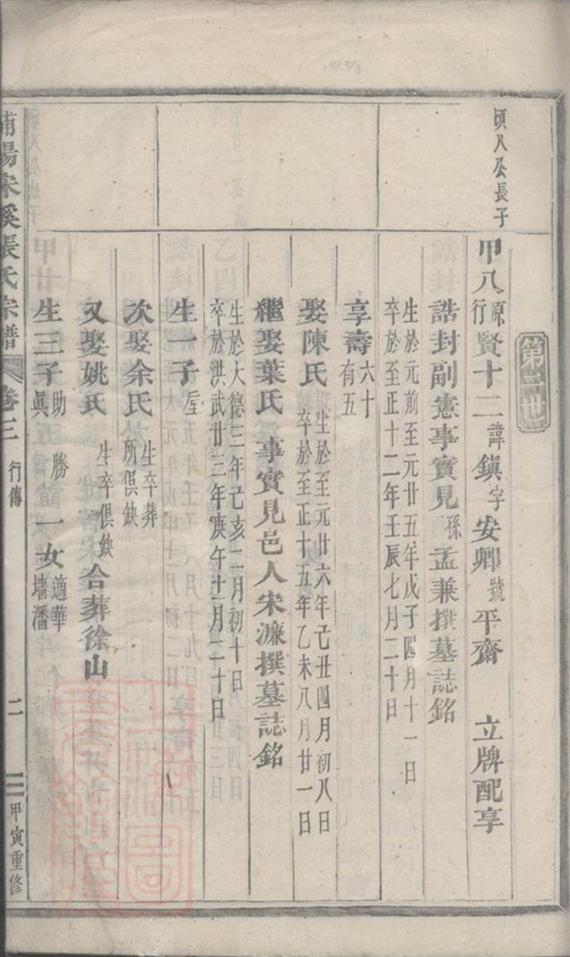 第三世
頃八公長子
甲八原行賢十二諱鎮字安卿號平齋 立牌配享
誥封副憲事實見孫孟兼撰墓誌銘
生於元前至元廿五年戊子四月十一日
卒於至正十二年壬辰七月二十日
享壽六十有五
娶陳氏 生於至元廿六年己丑四月初八日
卒於至正十五年乙未八月廿一日
繼娶葉氏 事實見邑人宋濂撰墓誌銘
生於大德三年己亥二月初十日
卒於洪武廿三年庚午十二月二十日
生一子 屋
次娶余氏 生卒葬所俱缺
又娶姚氏 生卒俱缺 合葬徐山
生三子 助 勝 真 一女適華墻潘
浦陽宋溪張氏宗譜 卷三 行傳 二 甲寅重修